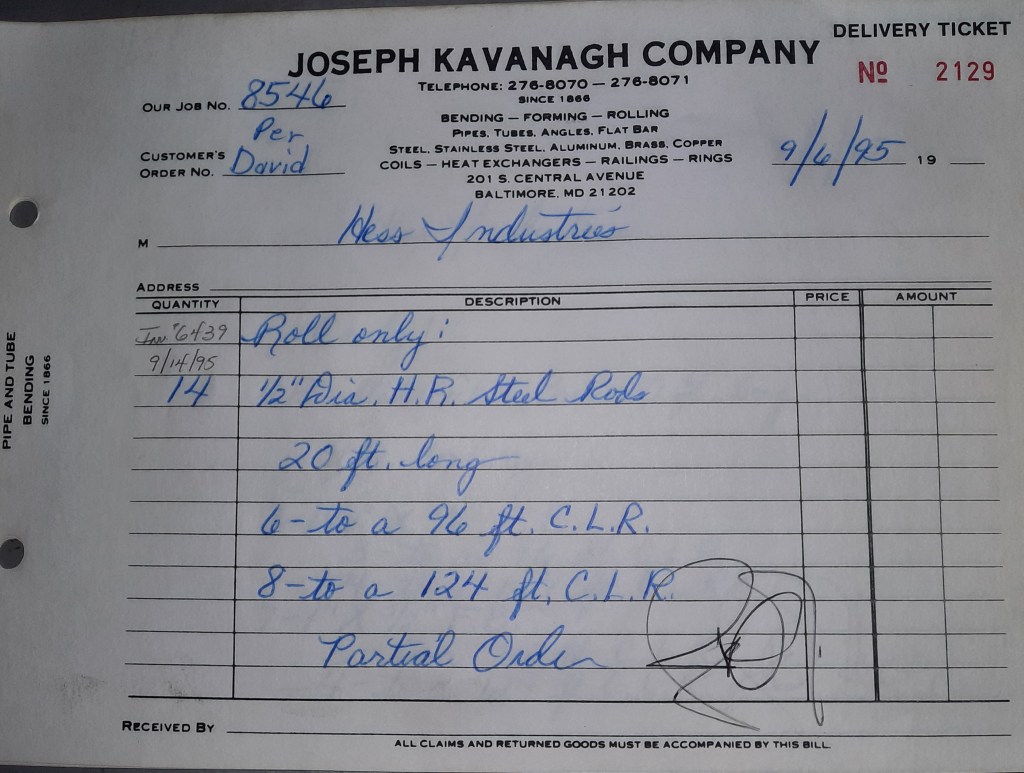 DELIVERY TICKET
JOSEPH KAVANAGH COMPANY
Nº 2129
TELEPHONE: 276-8070 — 276-8071
SINCE 1866
OUR JOB NO. 8546
BENDING — FORMING — ROLLING
PIPES, TUBES, ANGLES, FLAT BAR
STEEL, STAINLESS STEEL, ALUMINUM, BRASS, COPPER
COILS — HEAT EXCHANGERS — RAILINGS — RINGS
201 S. CENTRAL AVENUE
BALTIMORE, MD 21202
Per
CUSTOMER'S
ORDER NO. David
9/6/95 19
M Hess Industries
ADDRESS
QUANTITY DESCRIPTION PRICE AMOUNT
6439 Roll only:
9/14/95
14 1/2" Dia. H.R. Steel Rods
20 ft. long
6-to a 96 ft. C.L.R.
8-to a 124 ft. C.L.R.
Partial Order
RECEIVED BY
ALL CLAIMS AND RETURNED GOODS MUST BE ACCOMPANIED BY THIS BILL.
PIPE AND TUBE
BENDING
SINCE 1866